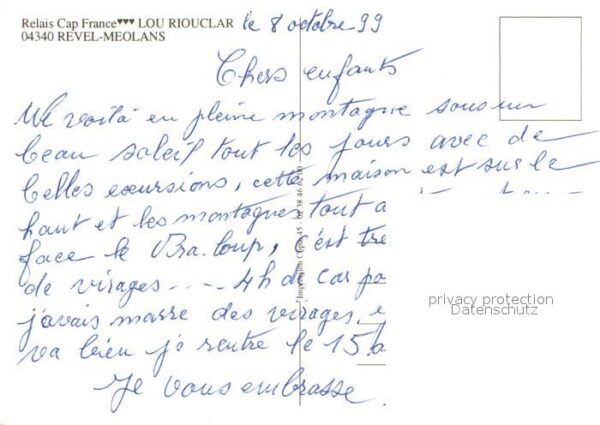 Relais Cap France♥♥♥ LOU RIOUCLAR
04340 REVEL-MEOLANS
le 8 octobre 99
Chers enfants
Me voilà en pleine montagne sous un
beau soleil tout les jours avec de
belles excursions, cette maison est sur le
haut et les montagnes tout a
face le Pra.loup, c'est tre
de virages .... 4h de car pa
j'avais marre des virages, e
va bien je rentre le 15.a
Je vous embrasse.
privacy protection
Datenschutz